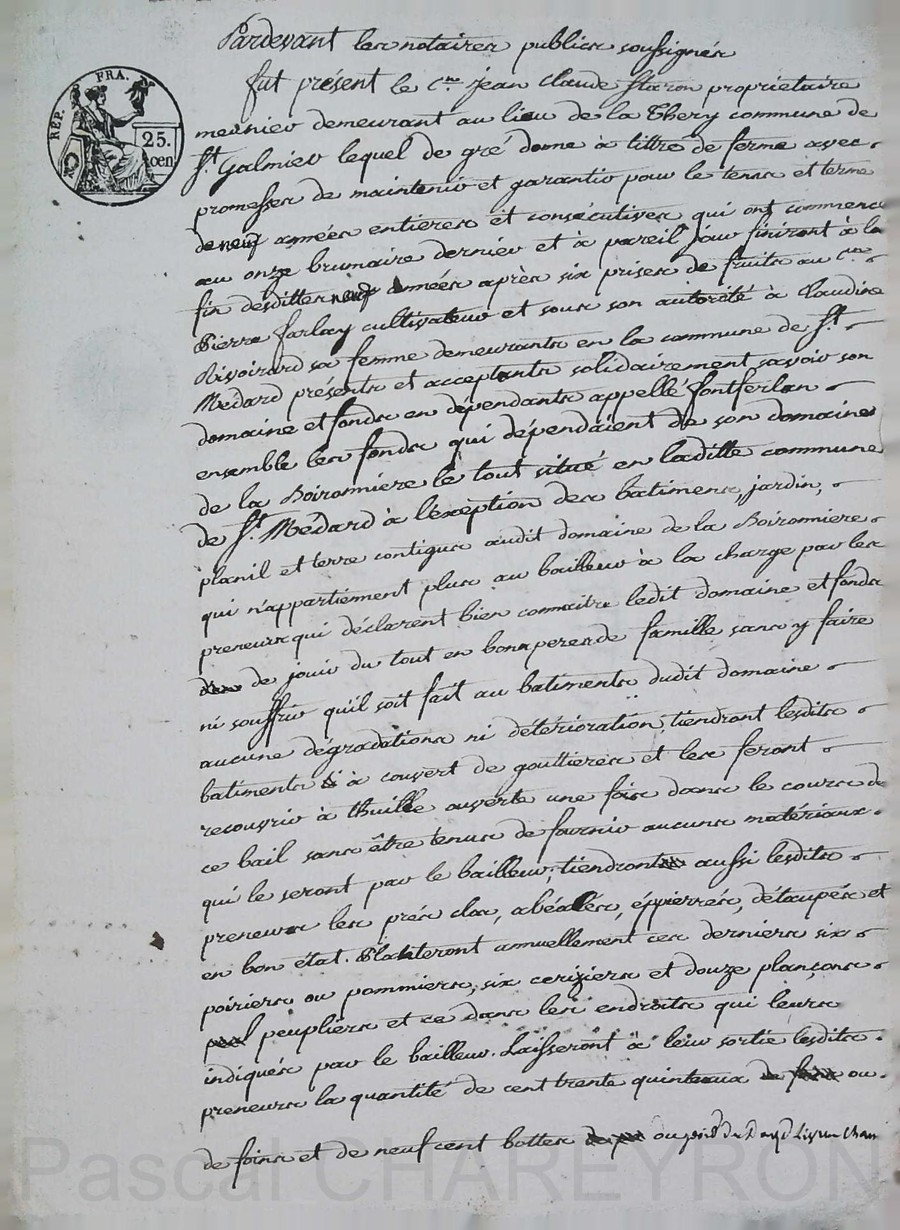 Pardevant les notaires publics soussignés
fut présent le c.en jean Claude Staron propriétaire
REP. FRA.
25.
cen
meunier demeurant au lieu de la Thery commune de
St. Galmier lequel de gré donne à tittre de ferme avec
promesses de maintenir et garantir pour le tems et terme
de neuf années entieres et consécutives qui ont commencé
au onze brumaire dernier et à pareil jour finiront à la
fin desdittes neuf années après six prises de fruits au c.en
Pierre Farlay cultivateur et sous son autorité à Claudine
Rivoirard sa femme demeurants en la commune de St.
Médard présents et acceptants solidairement savoir son
domaine et fonds en dépendants appellé fontferlan
ensemble les fonds qui dépendaient de son domaine
de la Boironniere le tout situé en laditte commune
de St. Médard à l'exception des batimens, jardin,
planil et terre contigus audit domaine de la Boironniere
qui n'appartiennent plus au bailleur à la charge par les
preneurs qui déclarent bien connaitre ledit domaine et fonds
de jouir du tout en bons peres de famille sans y faire
ni souffrir qu'il soit fait au batiments dudit domaine
aucune dégradations ni détérioration, tiendront lesdits
batiments à couvert de gouttieres et les feront
recouvrir à thuille ouverte une fois dans le cours de
ce bail sans être tenus de fournir aucuns matériaux
qui le seront par le bailleur, tiendront aussi lesdits
preneurs les prés clos, abéalés, éppierrés, détaupés et
en bon état. Planteront annuellement ces derniers six
poiriers ou pommiers, six cerisiers et douze plançons
peupliers et ce dans les endroits qui leurs
indiqués par le bailleur. Laisseront à leur sortie lesdits
preneurs la quantité de cent trente quinteaux ou
de foins et de neuf cent bottes ou
Pascal CHAREYRON